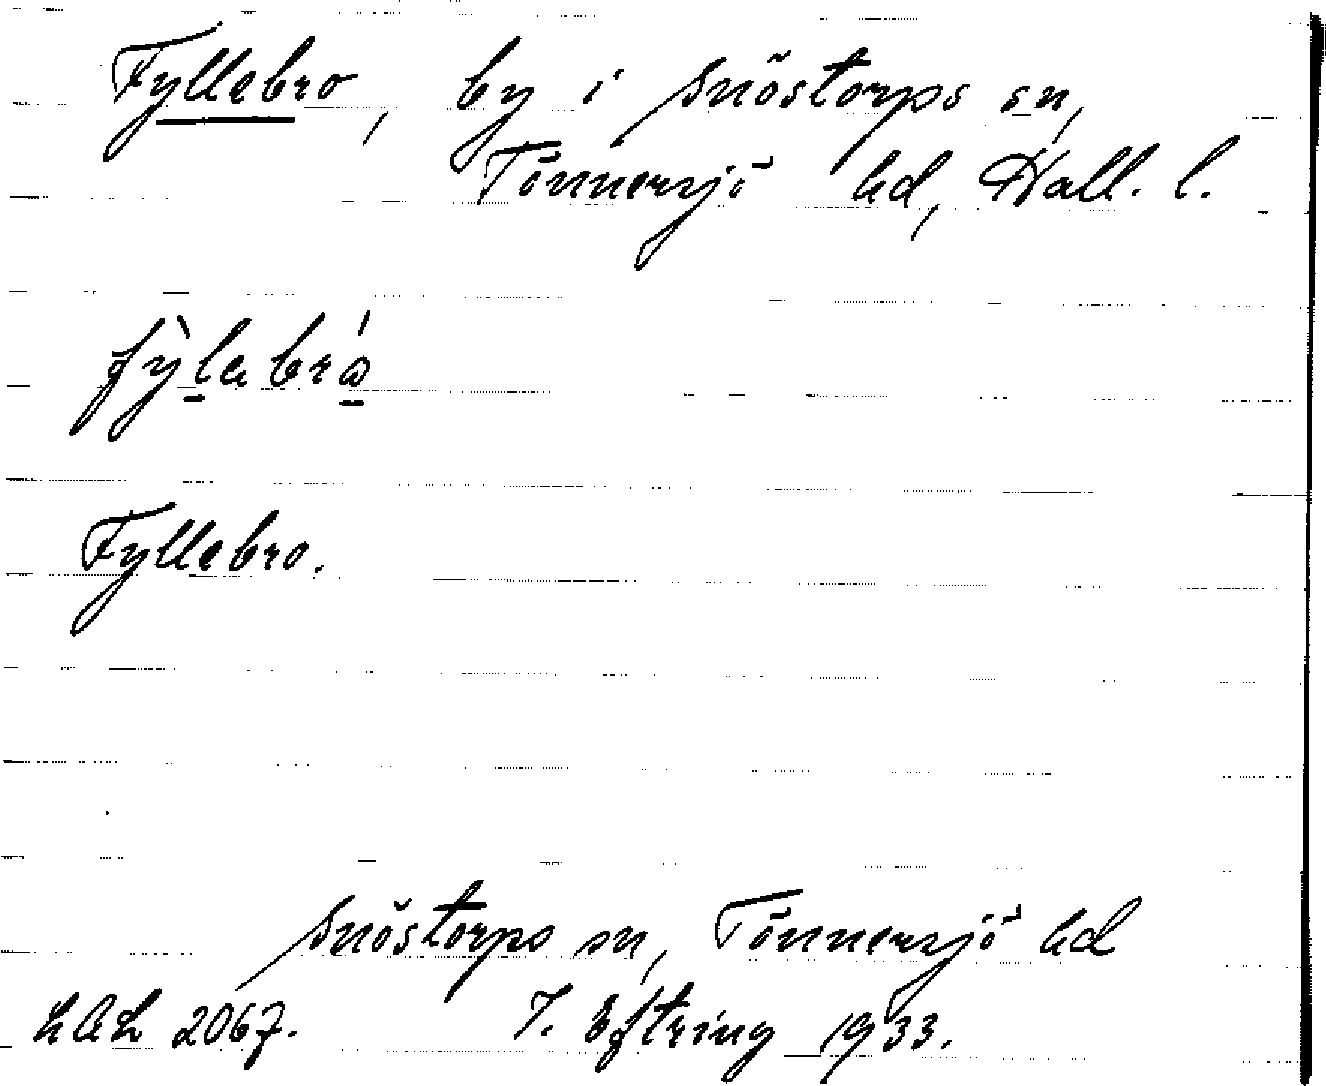 Fyllebro, by i Snöstorps sn,
Tönnersjö hd, Hall. l.
fỳlabró
Fyllebro.
Snöstorps sn, Tönnersjö hd
LAL 2067. T. Eftring 1933.